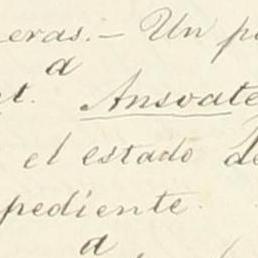 eras.- Un p
a
et. Ansoate
el estado de
pediente.
a